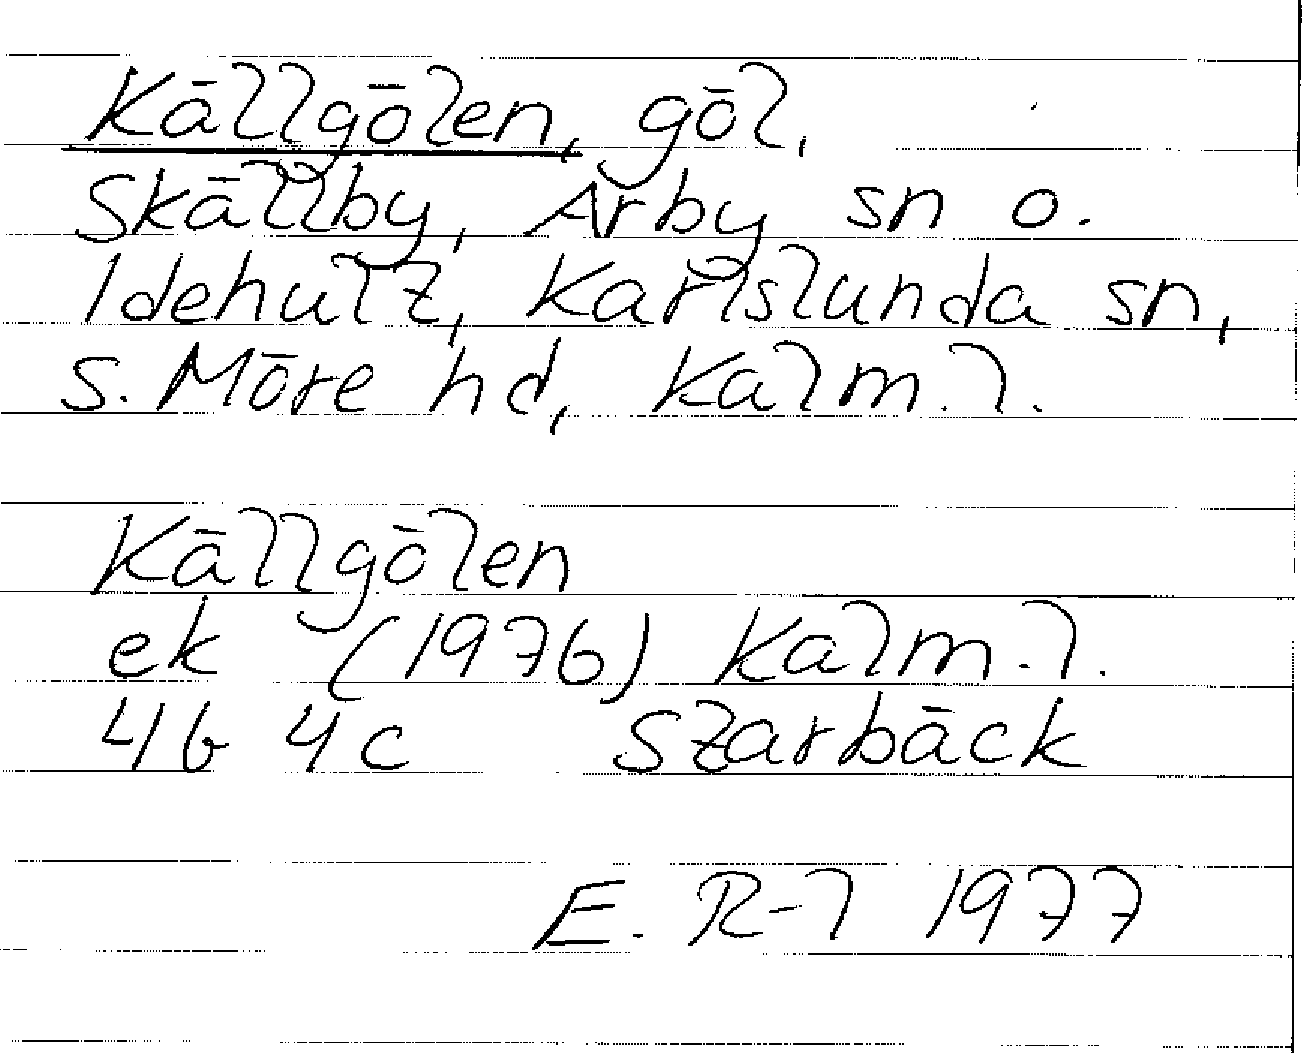 Källgölen, göl,
Skällby, Arby sn o.
Idehult, Karlslunda sn,
S. Möre hd, Kalm. l.
Källgölen
ek (1976) Kalm. l.
4b 4c Starbäck
E. R-l 1977